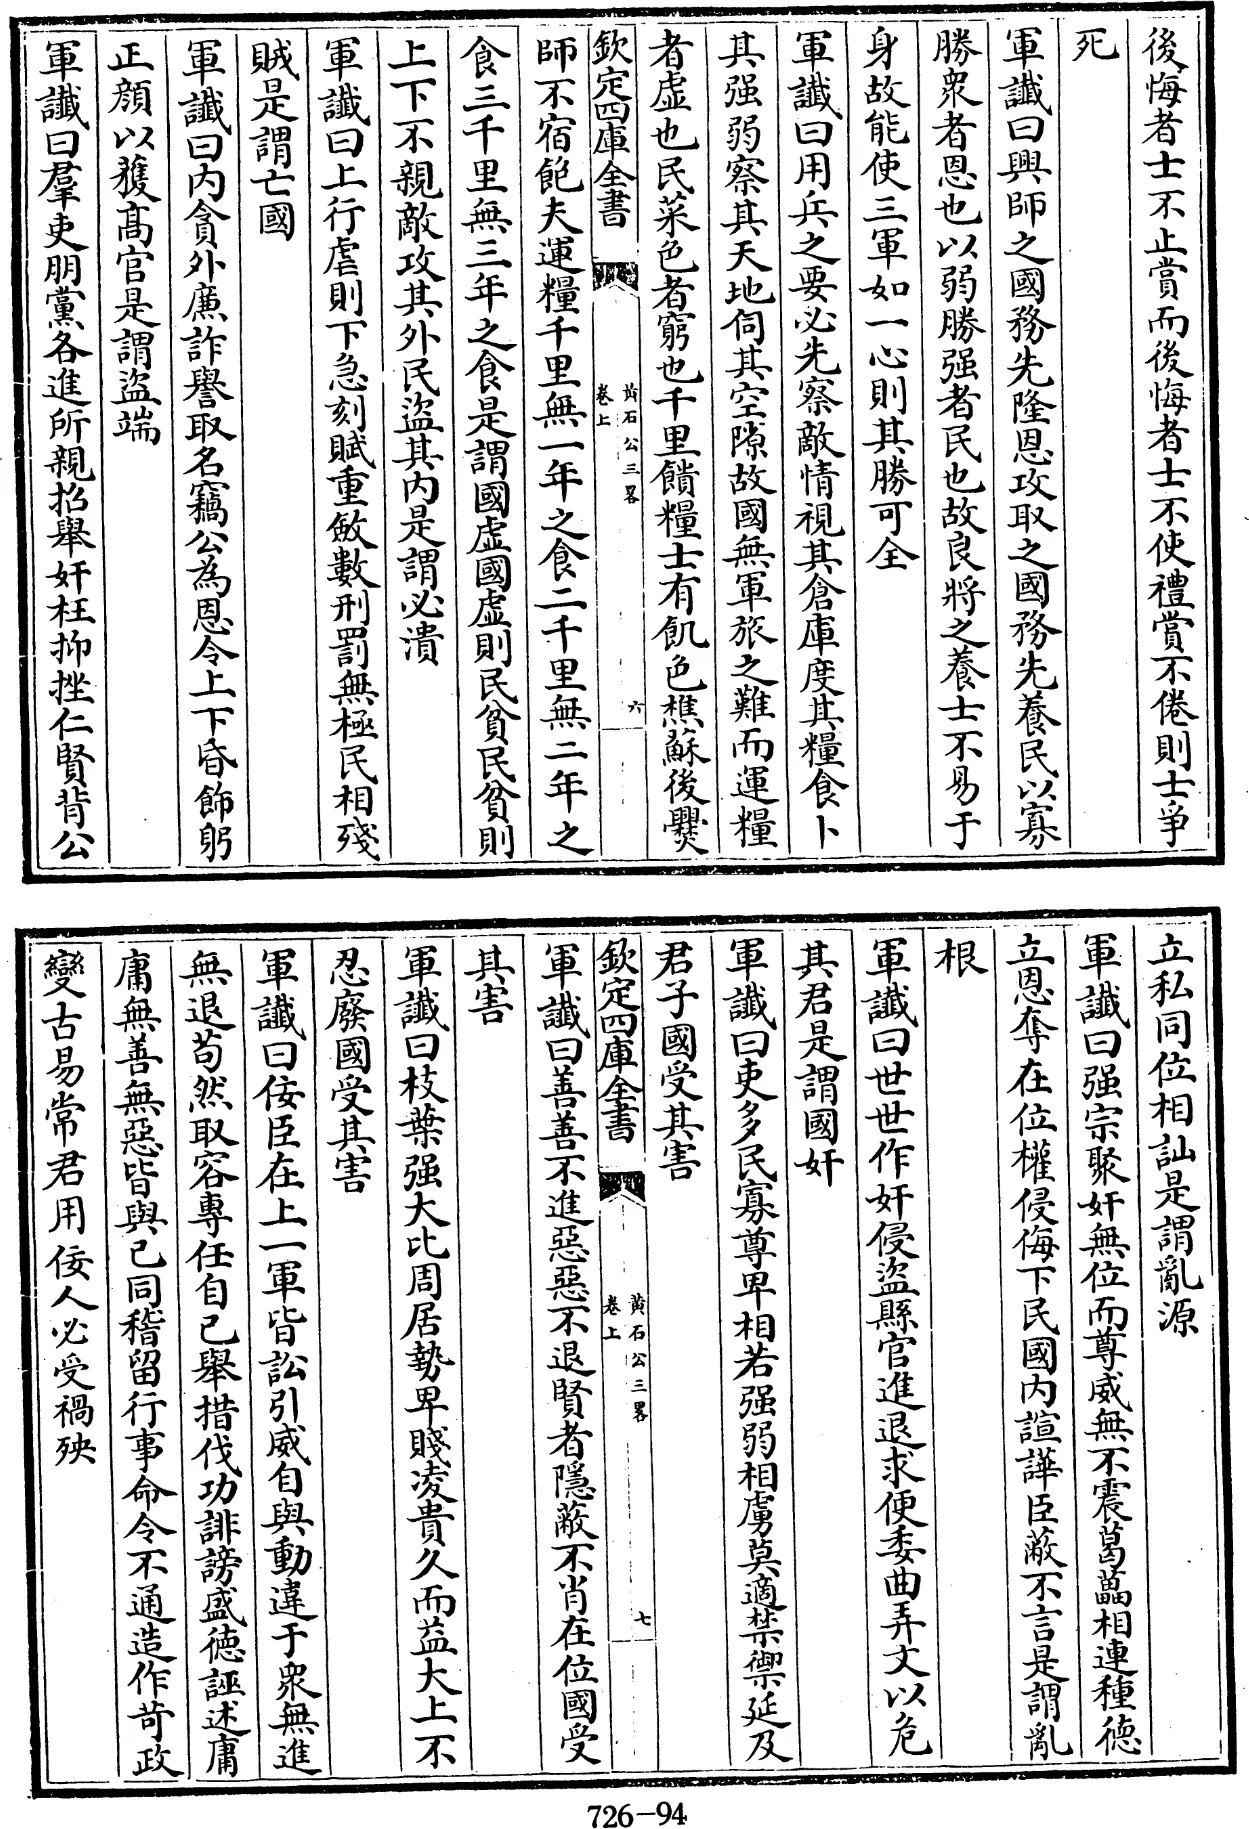 後悔者士不止賞而後悔者士不使禮賞不倦則士爭
死
軍讖曰興師之國務先隆恩攻取之國務先養民以寡
勝衆者恩也以弱勝强者民也故良將之養士不易于
身故能使三軍如一心則其勝可全
軍讖曰用兵之要必先察敵情視其倉庫度其糧食卜
其强弱察其天地伺其空隙故國無軍旅之難而運糧
者虚也民菜色者窮也千里饋糧士有飢色樵蘇後爨
欽定四庫全書
黄石公三畧
卷上
六
師不宿飽夫運糧千里無一年之食二千里無二年之
食三千里無三年之食是謂國虚國虚則民貧民貧則
上下不親敵攻其外民盗其内是謂必潰
軍讖曰上行虐則下急刻賦重斂數刑罰無極民相殘
賊是謂亡國
軍讖曰内貪外廉詐譽取名竊公為恩令上下昏飾躬
正顔以獲髙官是謂盗端
軍讖曰羣吏朋黨各進所親招舉奸枉抑挫仁賢背公
立私同位相訕是謂亂源
軍讖曰强宗聚奸無位而尊威無不震葛藟相連種德
立恩奪在位權侵侮下民國内諠譁臣蔽不言是謂亂
根
軍讖曰世世作奸侵盗縣官進退求便委曲弄文以危
其君是謂國奸
軍讖曰吏多民寡尊卑相若强弱相虜莫適禁禦延及
君子國受其害
欽定四庫全書
黄石公三畧
卷上
七
軍讖曰善善不進惡惡不退賢者隱蔽不肖在位國受
其害
軍讖曰枝葉强大比周居勢卑賤凌貴久而益大上不
忍廢國受其害
軍讖曰佞臣在上一軍皆訟引威自與動違于衆無進
無退苟然取容專任自己舉措伐功誹謗盛德誣述庸
庸無善無惡皆與己同稽留行事命令不通造作苛政
變古易常君用佞人必受禍殃
726-94